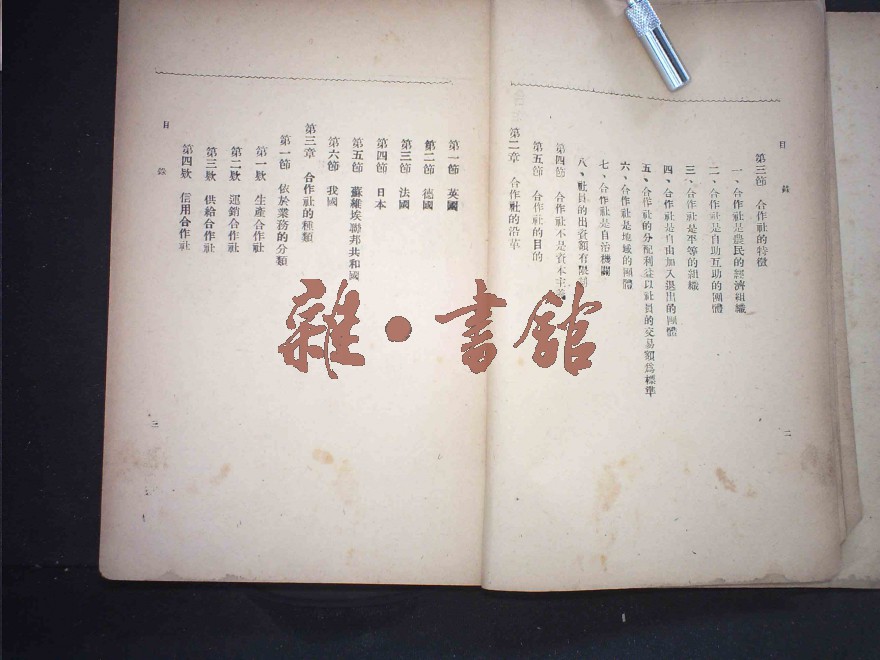 目錄
第三節 合作社的特徵
一、合作社是農民的經濟組織
二、合作社是自助互助的團體
三、合作社是平等的組織
四、合作社是自由加入退出的團體
五、合作社的分配利益以社員的交易額爲標準
六、合作社是地域的團體
七、合作社是自治機關
八、社員的出資額有限制
第四節 合作社不是資本主義
第五節 合作社的目的
第二章 合作社的沿革
二
第一節 英國
第二節 德國
第三節 法國
第四節 日本
第五節 蘇維埃聯邦共和國
第六節 我國
第三章 合作社的種類
第一節 依於業務的分類
第一欵 生產合作社
第二欵 運銷合作社
第三欵 供給合作社
第四欵 信用合作社
目錄
三
雜·書館